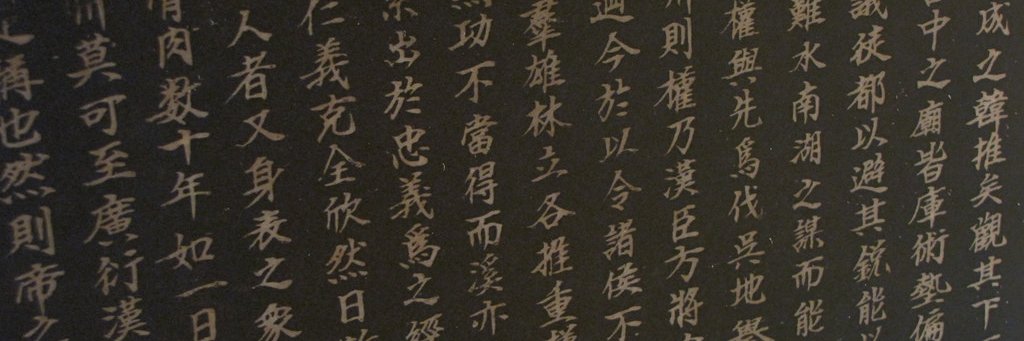 成之韓推矣觀其下
中之廟皆庫術藝偏
議徒都以避其銳能以
難水南湖之謀而能
權與先爲伐吳地
則權乃漢臣方將
迴今於以令諸侯不
羣雄林立各推重
功不當得而溪亦
出於忠義爲之經
仁義克全欣然日
人者又身表之衆
肉数十年如一日
莫可至廣衍漢
稱也然則帝之